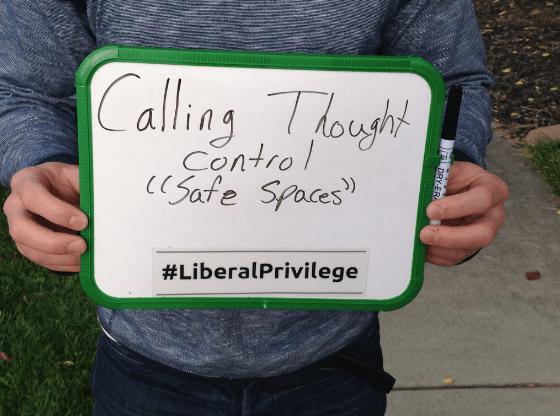 Calling Thought
Control
"Safe Spaces"
#LiberalPrivilege